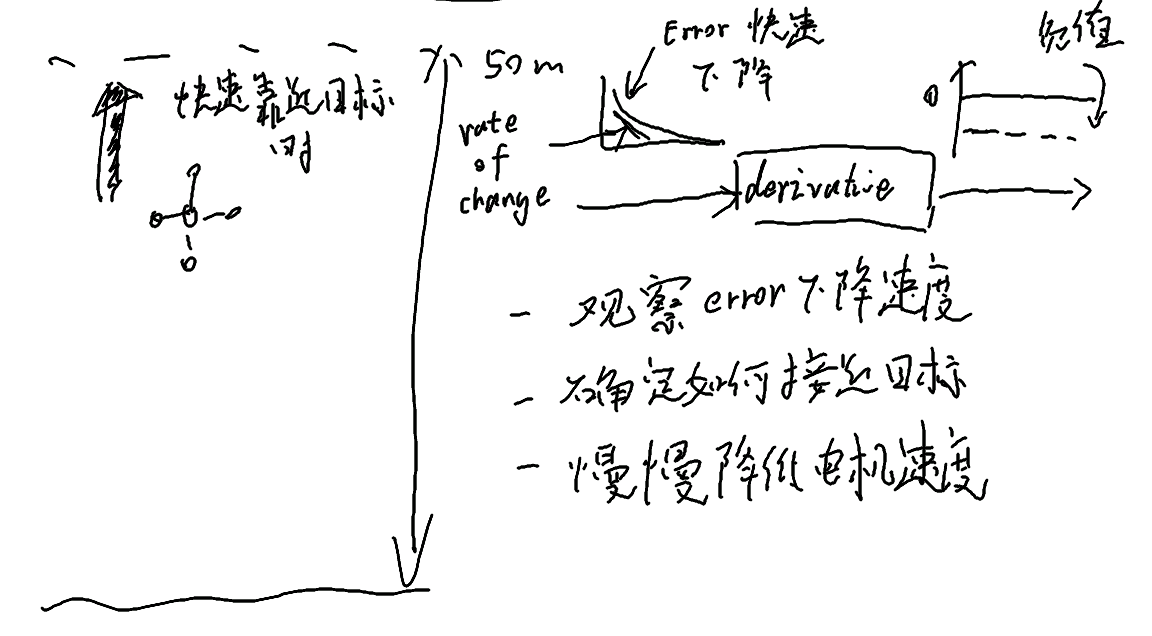 快速靠近目标
时
50m
Error 快速
下降
rate
of
change
derivative
0
负值
- 观察error下降速度
- 确定如何接近目标
- 慢慢降低电机速度